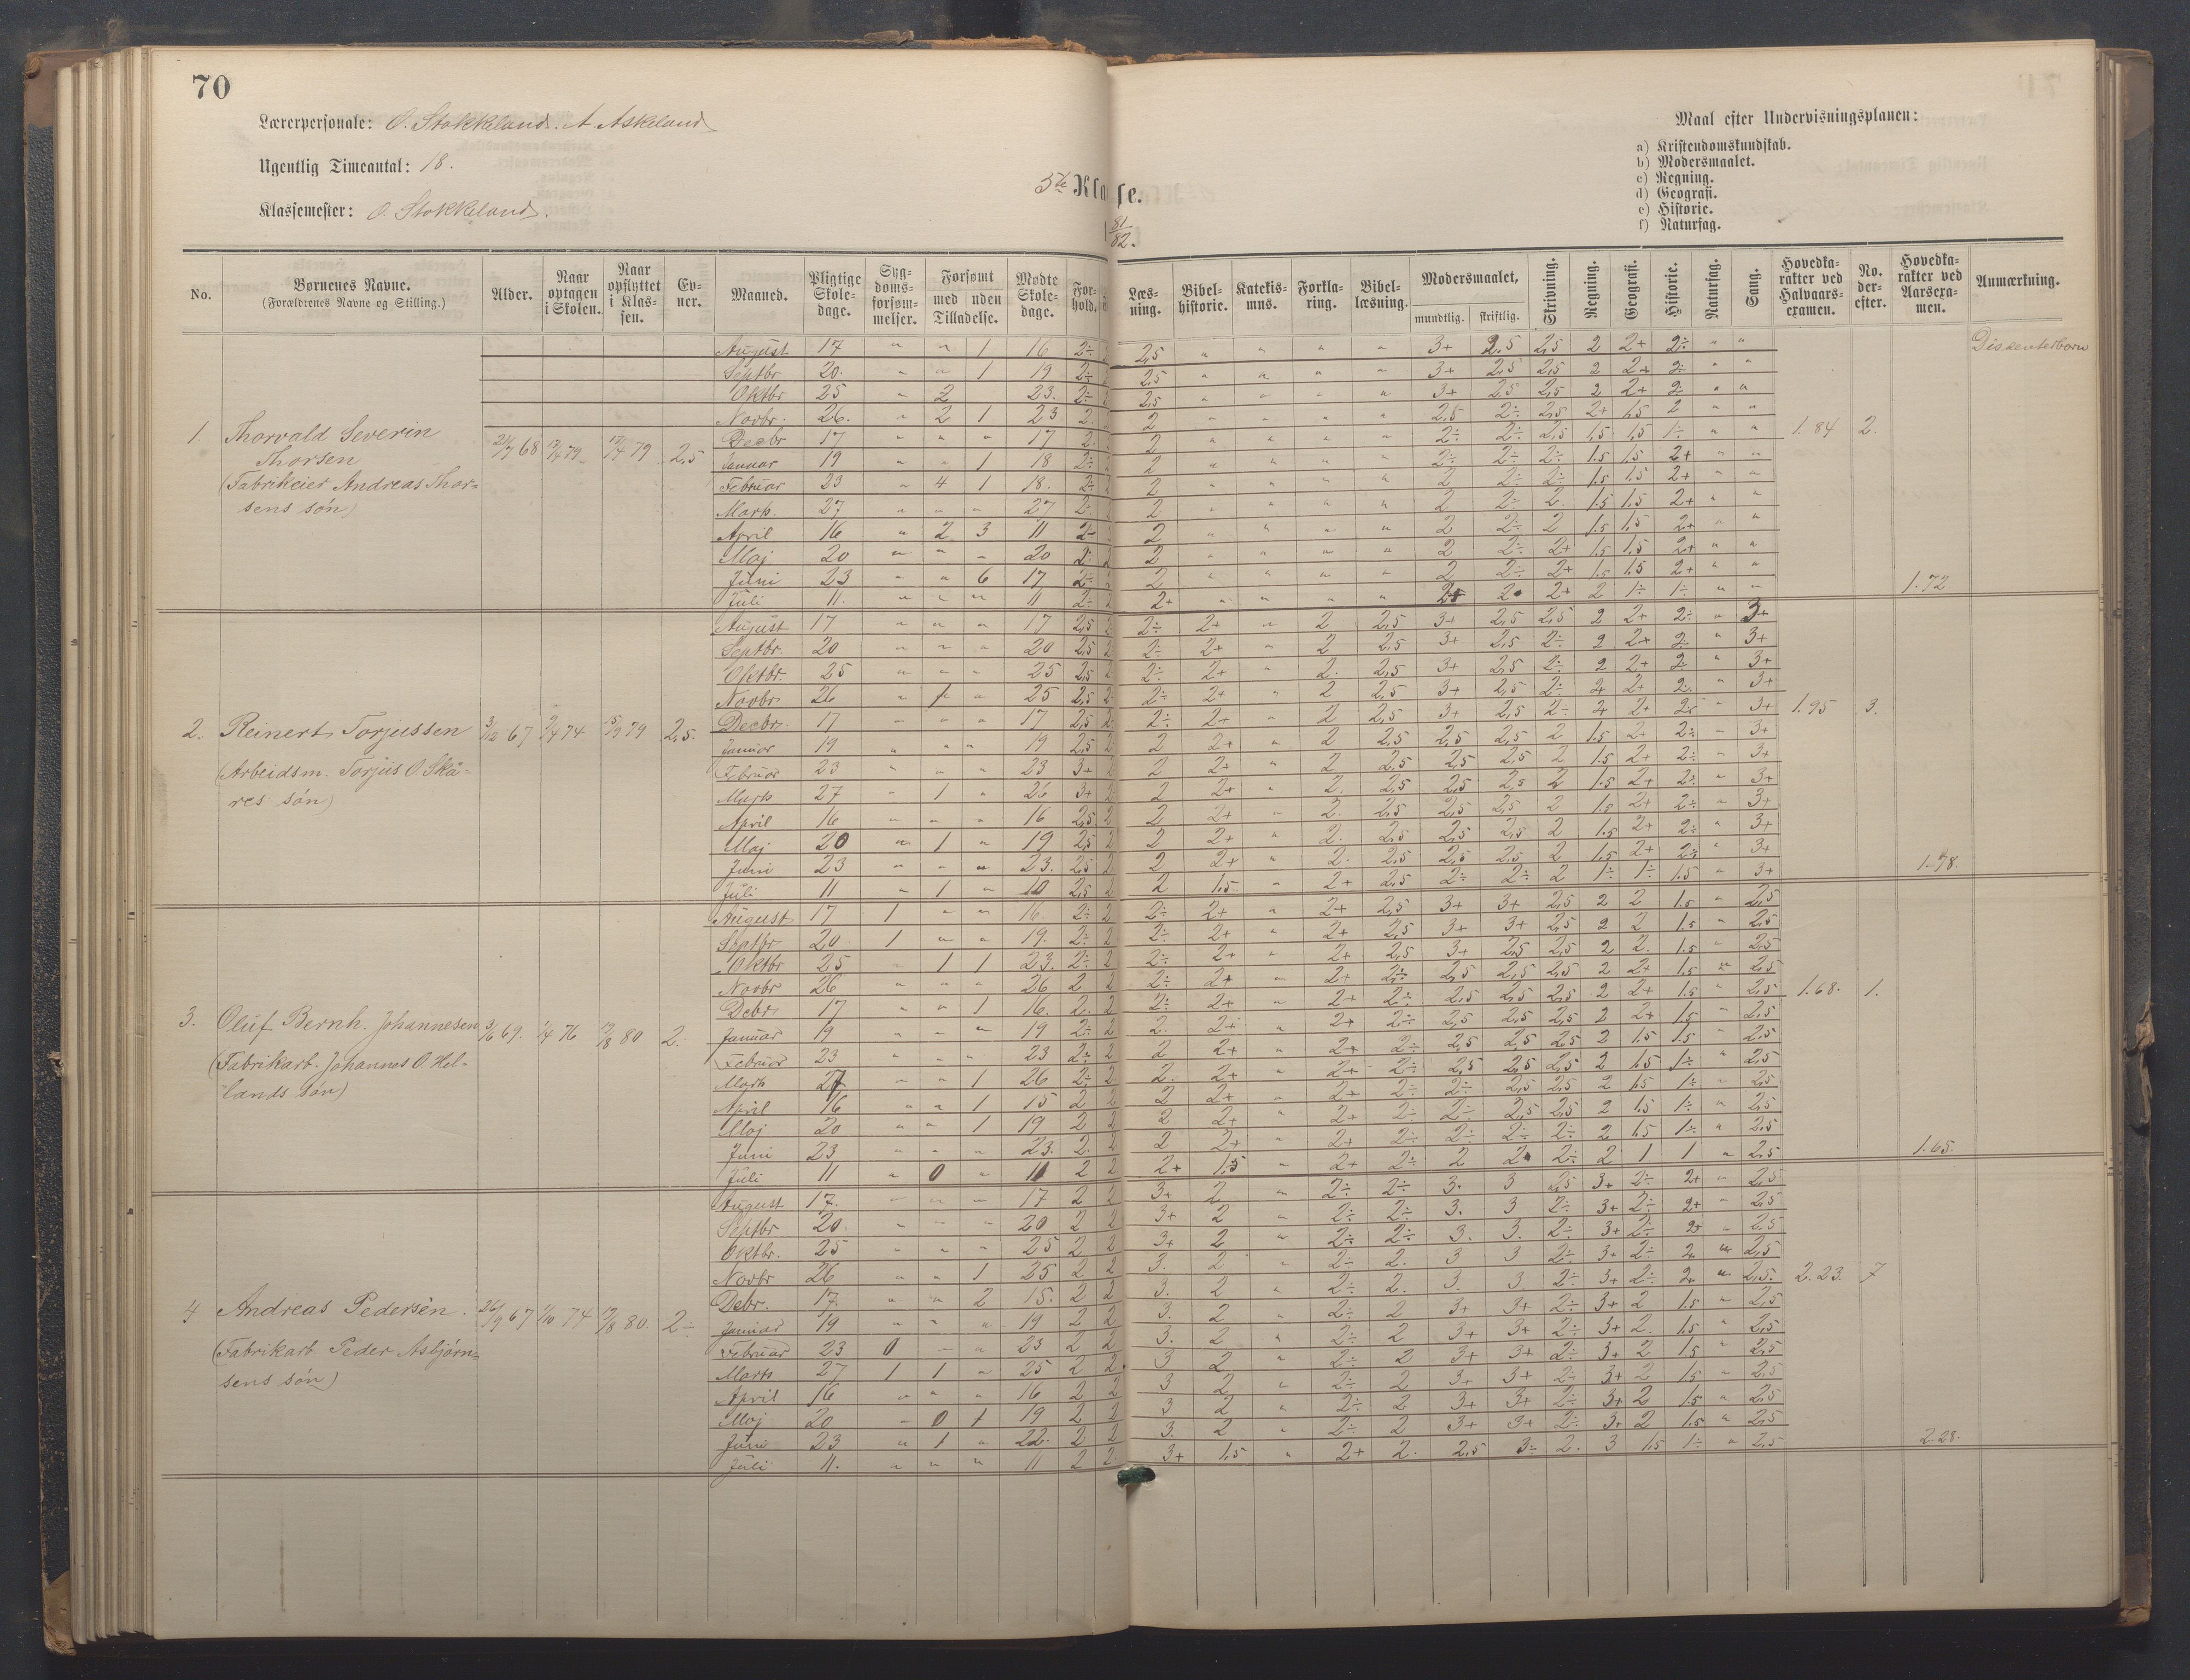 70
Lærerpersonale: O. Stokkeland. A. Askeland
Ugentlig Timeantal: 18.
Klassemester: O. Stokkeland.
5te Klasse.
81/82.
Maal efter Undervisningsplanen:
a) Kristendomskundskab.
b) Modersmaalet.
c) Regning.
d) Geografi.
e) Historie.
f) Naturfag.
No. Børnenes Navne. (Forældrenes Navne og Stilling.) Alder. Naar optagen i Skolen. Naar opflyttet i Klassen. Evner. Maaned. Pligtige Skoledage. Sygdomsforsømmelser. Forsømt med uden Tilladelse. Mødte Skoledage. Forhold. Læsning. Bibelhistorie. Katekismus. Forklaring. Bibellæsning. Modersmaalet, mundtlig. skriftlig. Skrivning. Regning. Geografi. Historie. Naturfag. Sang. Hovedkarakter ved Halvaarsexamen. No. derefter. Hovedkarakter ved Aarsexamen. Anmærkning.
1. Thorvald Severin
Thorsen
(Fabrikeier Andreas Thorsens søn)
68 79 79 2,5
August 17 " " 1 16 2÷ 2,5 " " " " 3+ 2,5 2,5 2 2+ 2÷ " " Dissenterbarn
Septbr 20. " " 1 19 2÷ 2,5 " " " " 3+ 2,5 2,5 2 2+ 2÷ " "
Oktbr 25 " 2 23. 2÷ 2,5 " " " " 3+ 2,5 2,5 2 2+ 2÷ " "
Novbr. 26. " 2 1 23 2. 2 " " " " 2,5 2÷ 2,5 2+ 1,5 2 " "
Decbr 17 " " " 17 2. 2 " " " " 2÷ 2÷ 2,5 1,5 1,5 1÷ " " 1.84 2.
Januar 19 " " 1 18 2÷ 2 " " " " 2÷ 2÷ 2÷ 1.5 1.5 2+ " "
Februar 23 " 4 1 18. 2÷ 2 " " " " 2 2÷ 2÷ 1.5 1.5 2+ " "
Marts. 27 " " " 27 2. 2 " " " " 2 2÷ 2. 1.5 1.5 2+ " "
April 16 " 2 3 11 2÷ 2 " " " " 2 2÷ 2 1.5 1,5 2+ " "
Maj 20 " " " 20 2÷ 2 " " " " 2 2÷ 2+ 1.5 1.5 2+ " "
Juni 23 " " 6 17 2÷ 2 " " " " 2 2÷ 2+ 1.5 1.5 2+ " " 1.72
Juli 11. " " " 11 2÷ 2+ " " " " 2 2+ 2 1÷ 1÷ " "
2. Reinert Torjussen
(Arbeidsm. Torjus O. Skåres søn)
3/12 67 74 79 2,5.
August 17 " " " 17 2,5 2÷ 2+ " 2 2,5 3+ 2,5 2,5 2 2+ 2÷ " 3+
Septbr. 20 " " " 20 2,5 2÷ 2+ " 2 2,5 3+ 2,5 2÷ 2 2+ 2 " 3+
Oktbr. 25 " " " 25 2,5 2÷ 2+ " 2. 2,5 3+ 2,5 2÷ 2 2+ 2 " 3+
Novbr 26 " 1 " 25 2,5 2÷ 2+ " 2 2,5 3+ 2,5 2÷ 2 2+ 2. " 3+
Decbr. 17 " " " 17 2,5 2÷ 2+ " 2 2,5 3+ 2,5 2÷ 2 2+ 2 " 3+ 1.95 3.
Januar 19 " " " 19 2,5 2 2+ " 2 2,5 2,5 2,5 2 1.5 2+ 2÷ " 3+
Februar 23 " " " 23 3+ 2 2+ " 2 2,5 2,5 2,5 2 1.5 2+ 2÷ " 3+
Marts 27 " 1 " 26 3+ 2 2+ " 2. 2,5 2,5 2,5 2 1.5 2+ 2÷ " 3+
April 16 " " " 16 2,5 2 2+ " 2. 2,5 2,5 2,5 2 1.5 2+ 2÷ " 3+
Maj 20 " 1 " 19 2,5 2 2+ " 2. 2,5 2,5 2,5 2 1.5 2+ 2÷ " 3+
Juni 23 " " " 23. 2,5 2 2+ " 2. 2,5 2,5 2,5 2 1.5 2+ 2÷ " 3+ 1.78.
Juli 11 " 1 " 10 2,5 2 1.5 " 2+ 2,5 2÷ 2÷ 2 1÷ 1÷ 1.5 " 3+
3. Oluf Bernh. Johannesen
(Fabrikarb. Johannes O. Hellands Søn)
69. 76 80 2.
August 17 1 " " 16. 2÷ 2 2÷ 2+ " 2+ 2,5 3+ 3+ 2,5 2 2 1.5 " 2,5
Septbr 20 1 " " 19. 2÷ 2 2÷ 2+ " 2+ 2,5 3+ 3+ 2,5 2 2 1.5 " 2,5
Oktbr 25 " 1 1 23. 2÷ 2 2÷ 2+ " 2+ 2,5 3+ 2,5 2,5 2 2. 1.5 " 2,5
Novbr 26 " " " 26 2 2 2÷ 2+ " 2+ 2÷ 2,5 2,5 2,5 2 2+ 1.5 " 2,5
Debr. 17 " " 1 16. 2. 2 2÷ 2+ " 2+ 2÷ 2,5 2,5 2,5 2 2+ 1.5 " 2,5 1.68. 1.
Januar 19 " " " 19 2÷ 2 2. 2+ " 2+ 2÷ 2,5 2,5 2,5 2 2+ 1.5 " 2,5
Februar 23 " " " 23 2÷ 2 2 2+ " 2+ 2÷ 2,5 2,5 2,5 2 1.5 1.5 " 2,5
Marts 27 " " 1 26 2÷ 2 2. 2+ " 2+ 2÷ 2,5 2,5 2,5 2 1.5 1÷ " 2,5
April 16 " " 1 15 2 2 2 2+ " 2+ 2÷ 2÷ 2,5 2,5 2 1.5 1÷ " 2,5
Maj 20 " " 1 19 2 2 2 2+ " 2+ 2÷ 2÷ 2,5 2,5 2 1.5 1÷ " 2,5
Juni 23 " " " 23. 2. 2 2 2+ " 2+ 2÷ 2÷ 2÷ 2÷ 2 1.5 1÷ " 2,5 1.65.
Juli 11 " 0 " 11 2 2 2+ 1,5 " 2+ 2÷ 2 2 2÷ 2 1 1 " 2,5
4 Andreas Pedersen.
(Fabrikarb. Peder Asbjørnsens søn)
26/9 67 1/10 74 80. 2÷
August 17. " " " 17 2 2 3+ 2 " 2÷ 2÷ 3. 3 2,5 3+ 2÷ 2+ " 2,5
Septbr 20. " " " 20 2 2 3+ 2 " 2÷ 2÷ 3. 3 2÷ 3+ 2÷ 2+ " 2,5
Oktbr. 25 " " " 25 2 2 3+ 2 " 2÷ 2÷ 3. 3. 2÷ 3+ 2÷ 2+ " 2,5
Novbr 26 " " 1 25 2 2 3. 2 " 2÷ 2. 3 3 2÷ 3+ 2÷ 2 " 2,5
Debr. 17. " " 2 15. 2 2 3. 2 " 2÷ 2. 3. 3 2÷ 3+ 2÷ 2 " 2,5. 2.23. 7
Januar 19 " " " 19 2 2 3. 2 " 2÷ 2 3+ 3+ 2÷ 3+ 2 1.5 " 2,5
Februar 23 0 " " 23 2 2 3. 2 " 2÷ 2 3+ 3+ 2÷ 3+ 2. 1.5 " 2,5
Marts 27 1 1 " 25 2 2. 3 2 " 2÷ 2 3+ 3+ 2÷ 3+ 2 1.5 " 2,5
April 16 " " " 16 2 2 3 2 " 2÷ 2 3+ 3+ 2÷ 3+ 2 1.5 " 2,5
Maj 20 " 0 1 19 2 2 3 2 " 2÷ 2 3+ 3+ 2÷ 3+ 2 1.5 " 2,5
Juni 23 " 1 " 22. 2 2 3. 2 " 2÷ 2 3+ 3+ 2÷ 3+ 2 1.5 " 2,5 2.28.
Juli 11. " " " 11 2 2 3+ 1,5 " 2+ 2. 2,5 3÷ 2. 3 1,5 1÷ " 2,5